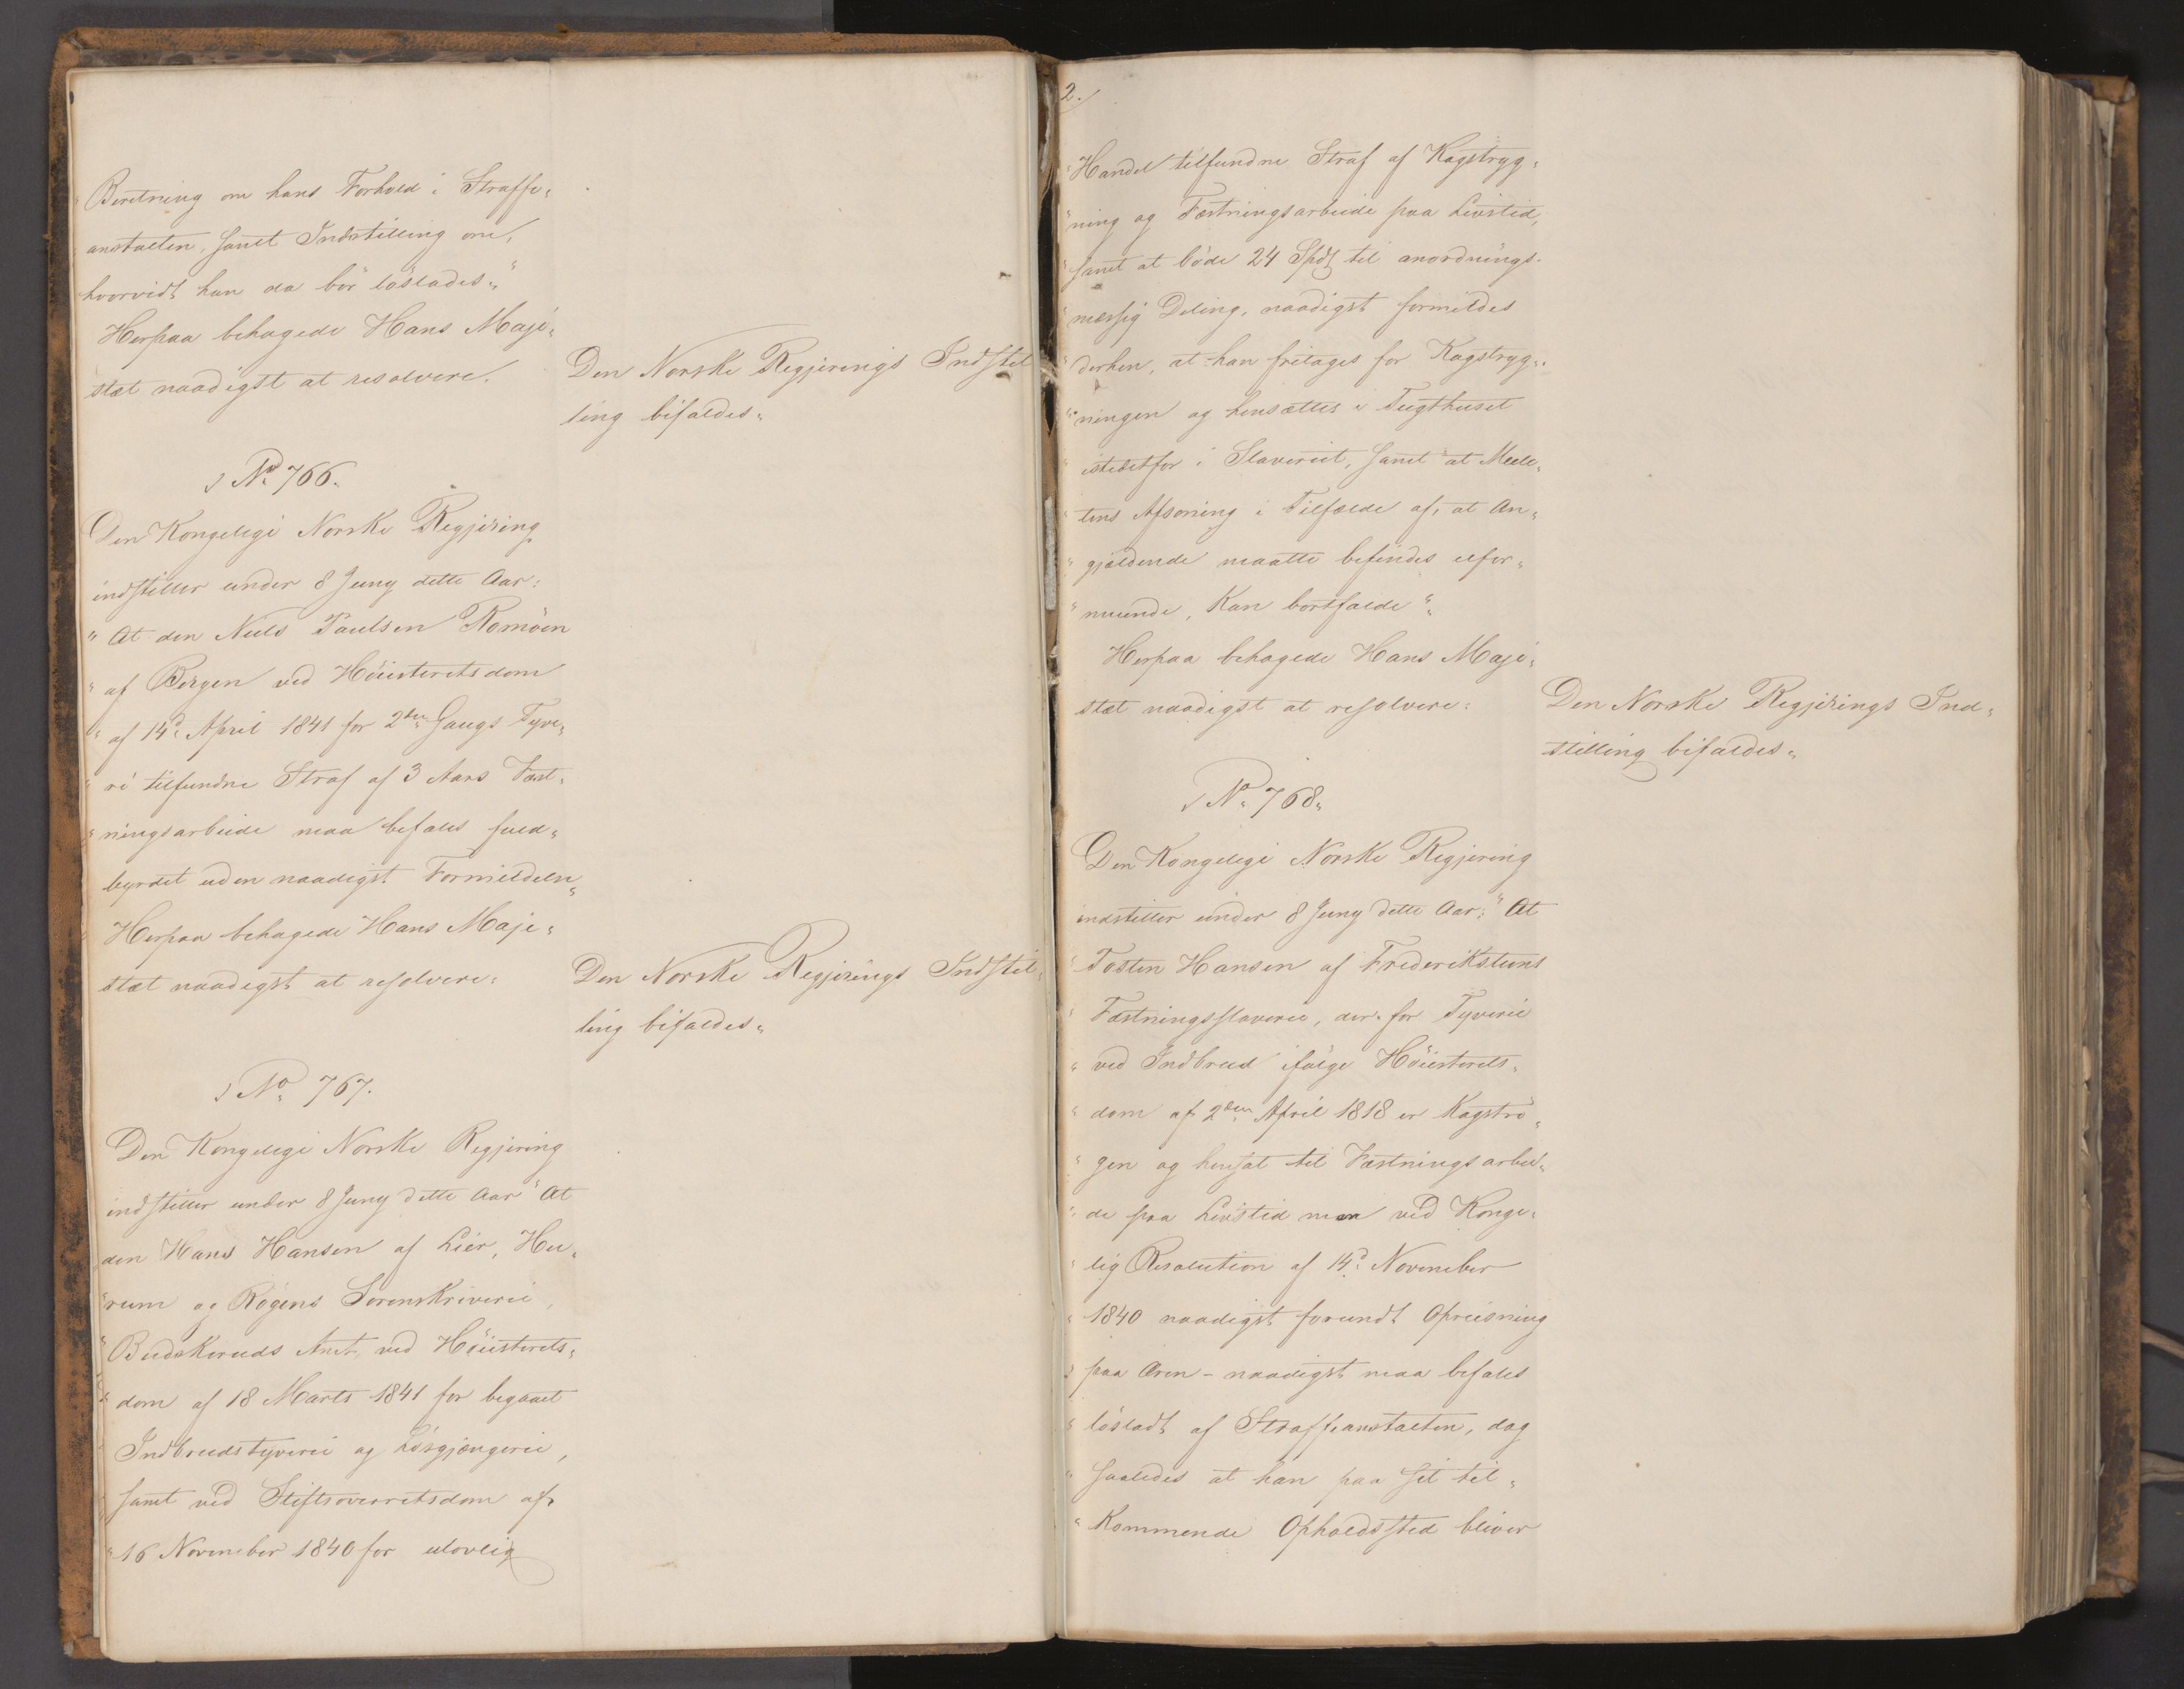 "Beretning om hans Forhold i Straffe„
anstalten, samt Indstilling om,
hvorvidt han da bör löslades„"
Herpaa behagede Hans Maje„
stæt naadigst at resolvere.
Den Norske Regjerings Indstil
ling bifaldes„
No 766.
Den Kongelige Norske Regjering
indstiller under 8 Juny dette Aar:
" At den Niels Paulsen Romöen
" af Bergen ved Höiesteretsdom
" af 14d April 1841 for 2den Gangs Tyve„
" ri tilfundne Straf af 3 Aars Fæst„
" ningsarbeide maa befales fuld„
byrdet uden naadigst Formildelse„
Herpaa behagede Hans Maje„
stæt naadigst at resolvere:
Den Norske Regjerings Indstil„
ling bifaldes„
No 767.
Den Kongelige Norske Regjering
indstiller under 8 Juny dette Aar " At
den Hans Hansen af Lier, Hu„
"rum og Rögens Sorenskriverie,
"Budskeruds Amt, ved Höiesterets„
" dom af 18 Marts 1841 for begaaet
" Indbrudstyverie og Lösgjængerie,
" samt ved Stiftsoverretsdom af
" 16 November 1840 for ulovlig
2.
" Handel tilfundne Straf af Kagstryg„
" ning og Fæstningsarbeide paa Livstid,
" samt at böde 24 Spd til anordnings„
" mæssig Deling, naadigst formildes
" derhen, at han fritages for Kagstryg„
" ningen og hensættes i Tugthuset
" istedetfor i Slaveriet, samt at Mulc„
" tens Afsoning i Tilfælde af, at An„
" gjældende maatte befindes ufor„
" muende, kan bortfalde "„
Herpaa behagede Hans Maje„
stæt naadigst at resolvere:
Den Norske Regjerings Ind„
stilling bifaldes„
No 768„
Den Kongelige Norske Regjering
indstiller under 8 Juny dette Aar: " At
" Tosten Hansen af Frederikstens
" Fæstningsslaverie, der for Tyverie
" ved Indbrud ifölge Höiesterets„
" dom af 2den April 1818 er Kagströ„
" gen og hensat til Fæstningsarbei„
" de paa Livstid men ved Konge„
" lig Resolution af 14d November
" 1840 naadigst forundt Opreisning
" paa Æren - naadigst maa befales
" lösladt af Straffeanstalten, dog
" saaledes at han paa sit til„
" kommende Opholdssted bliver